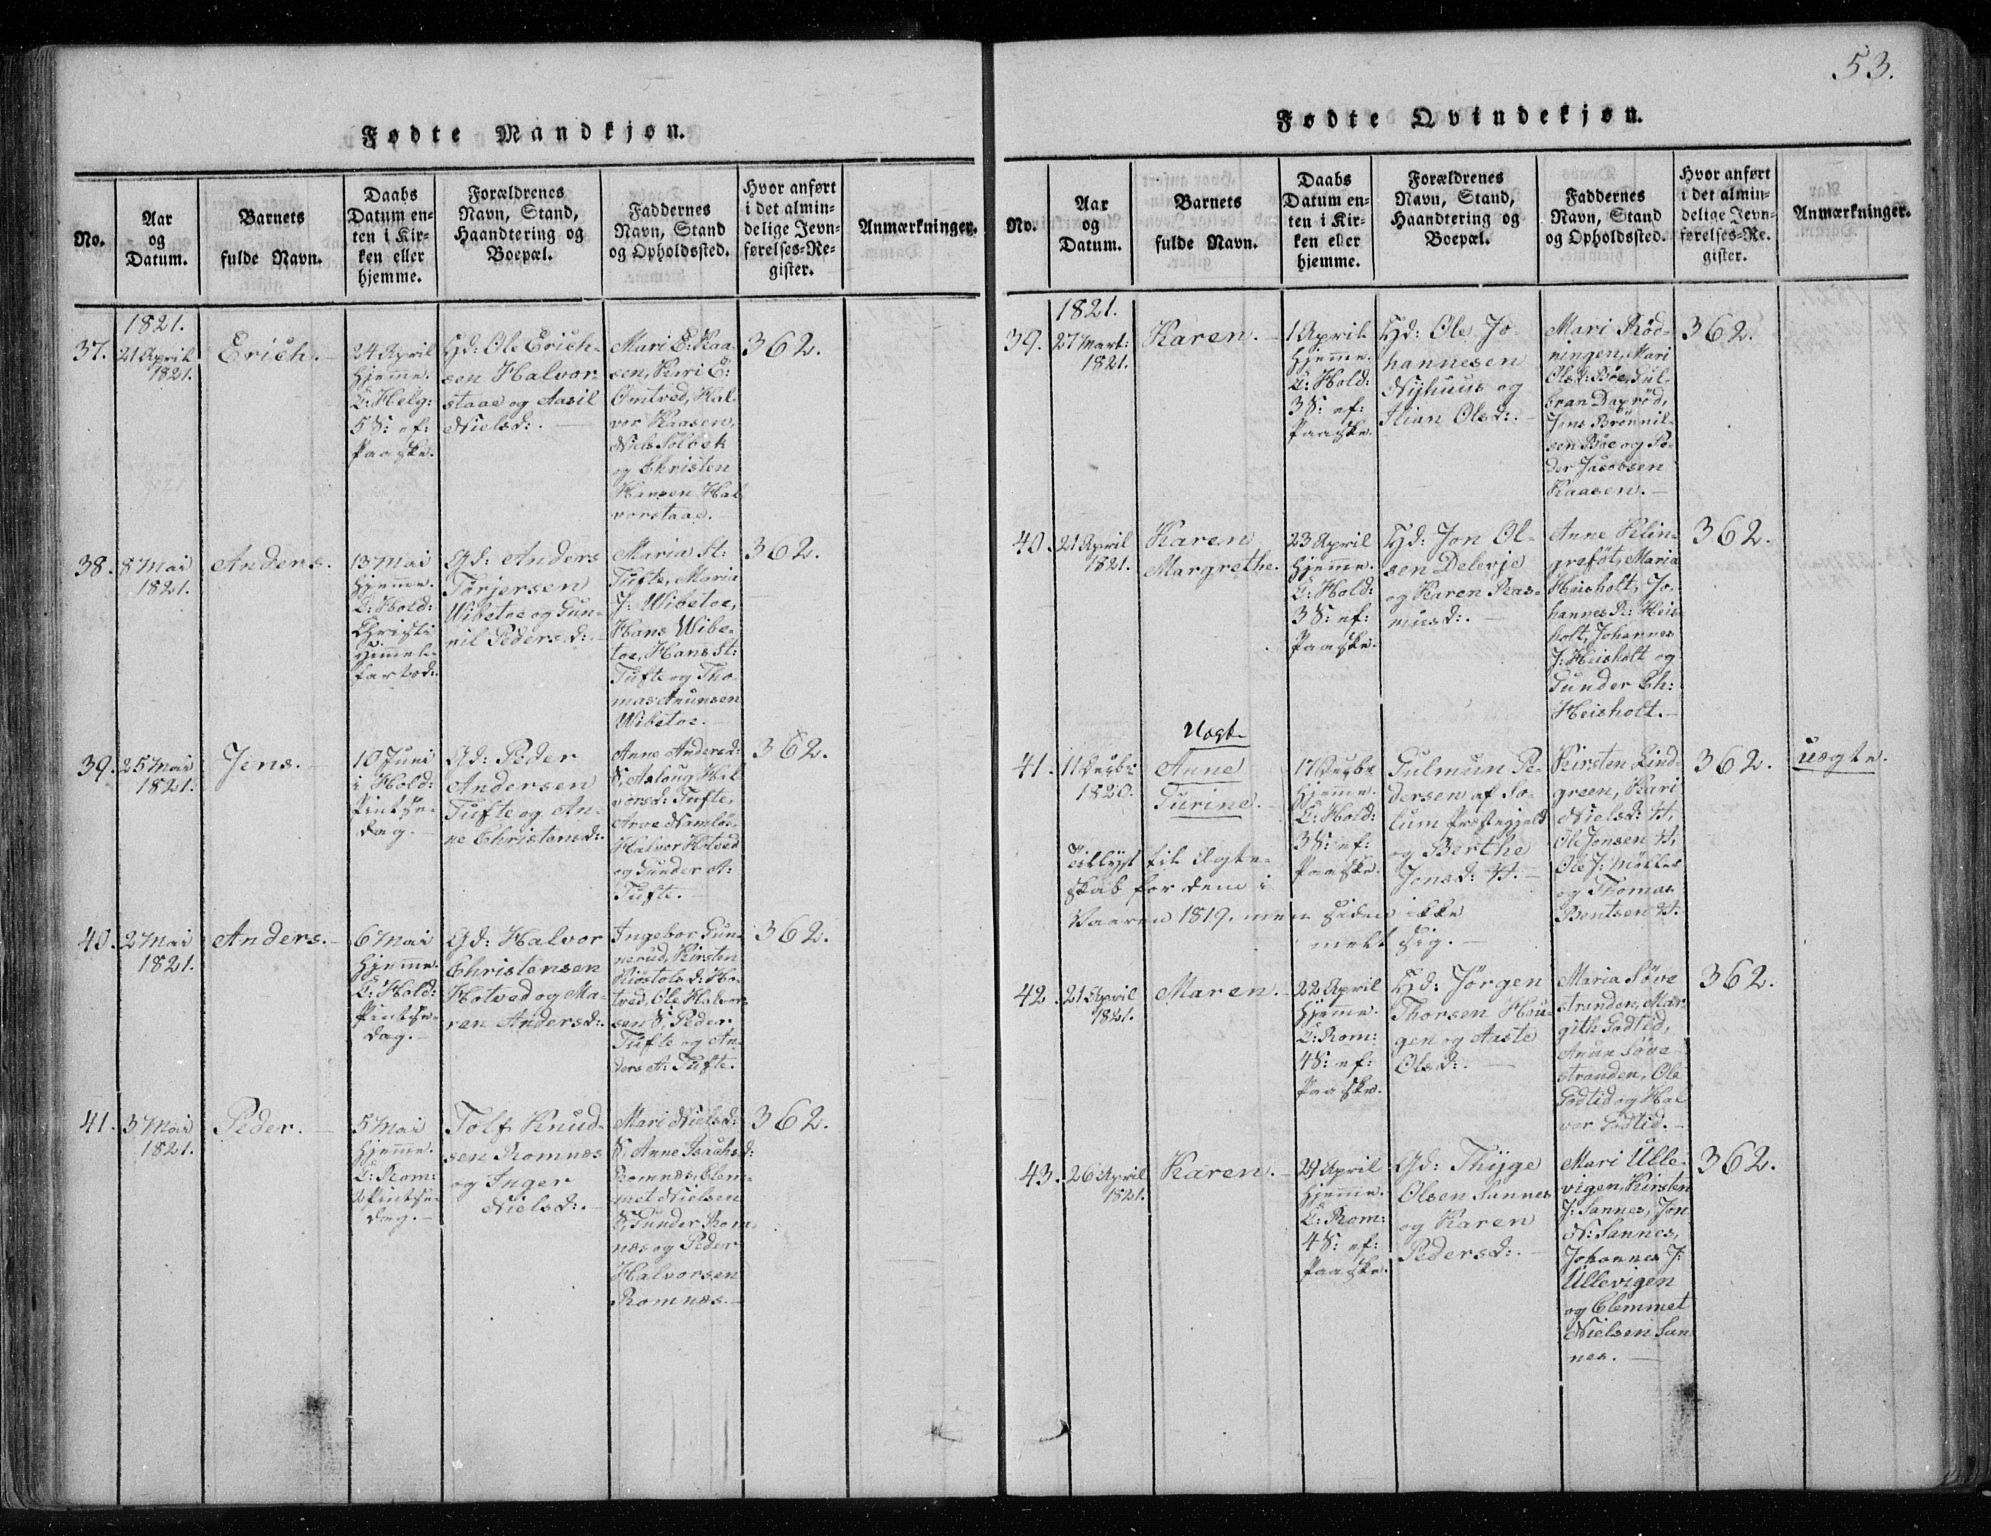 53.
Fødte Mandkjøn.
No.
Aar
og
Datum.
Barnets
fulde Navn.
Daabs
Datum en-
ten i Kir-
ken eller
hjemme.
Forældrenes
Navn, Stand,
Haandtering og
Boepæl.
Faddernes
Navn, Stand
og Opholdssted.
Hvor anført
i det almin-
delige Jevn-
førelses-Re-
gister.
Anmærkninger.
1821.
37.
21 April
1821.
Erich.
24 April
Hjemme.
C: Helg:
5 S: ef:
Paaske.
Gd: Ole Erich-
sen Halvor-
staae og Aasil
Nielsd:.
Mari E: Kaa-
sen, Kari E:
Omtved, Hal-
vor Kaasen,
Niels Solbek
og Christen
Hansen Hal
vorstaae.
362.
38.
8 Mai
1821.
Anders.
13 Mai
Hjemme.
C: Hold:
Christi
Himmel-
fartsd:
Gd: Anders
Torjersen
Wibetoe og Gun-
nil Pedersd:.
Maria St:
Tufte, Maria
J: Wibetoe,
Hans Wibe-
toe, Hans St:
Tufte og Tho-
mas Anunsen
Wibetoe.
362.
39.
25 Mai
1821.
Jens.
10 Juni
i Hold:
Pintse-
dag.
Gd: Peder
Andersen
Tufte og An-
ne Christensd:.
Anne Andersd:
S, Aaloug Hal
vorsd: Tufte,
Arve Namløs,
Halvor Hotved
og Gunder A:
Tufte.
362.
40.
2 Mai
1821.
Anders.
6 Mai
Hjemme.
C: Hold:
Pintse-
dag.
Gd: Halvor
Christensen
Hotved og Ma-
ren Andersd:.
Ingebor Gun-
nerud, Kirsten
Kiøstolsd: Ho-
tved, Ole Halvor
sen S, Peder
Tufte og An-
ders A: Tufte.
362.
41.
3 Mai
1821.
Peder.
5 Mai
Hjemme.
C: Rom:
2 Pintse-
dag.
Tolf Knud-
sen Romnæs
og Inger
Nielsd:.
Mari Nielsd:
S, Anne Isachsd:
Romnæs, Clem-
met Nielsen
S, Gunder Rom
næs og Peder
Halvorsen
Romnæs.
362.
Fødte Qvindekjøn.
No.
Aar
og
Datum.
Barnets
fulde Navn.
Daabs
Datum en-
ten i Kir-
ken eller
hjemme.
Forældrenes
Navn, Stand,
Haandtering og
Boepæl.
Faddernes
Navn, Stand
og Opholdssted.
Hvor anført
i det almin-
delige Jevn-
førelses-Re-
gister.
Anmærkninger.
1821.
39.
27 Mart:
1821.
Karen.
1 April
Hjemme.
C: Hold:
3 S: ef:
Paaske.
Hd: Ole Jo-
hannesen
Nyhuus og
Olsd:.
Mari Rød-
ningen, Mari
Olsd: Bøe, Gul-
bran Daprød,
Jens Brønnil-
sen Bøe og Pe-
der Jacobsen
Kaasen.
362.
40.
21 April
1821.
Karen
Margrethe.
23 April
Hjemme.
C: Hold:
3 S: ef:
Paaske.
Hd: Jon Ol-
sen Delevje
og Karen Ras-
musd:.
Anne Klin-
grefot, Maria
Heisholt, Jo-
hannes R: Heis
holt, Johannes
J: Heisholt og
Gunder Ch:
Heisholt.
362.
Uægte
41.
11 Decbr
1820.
Anne
Turine.
17 Decbr
Hjemme.
C: Hold:
3 S: ef:
Paaske.
Gulmun Pe-
dersen af So-
lum Præstegjeld
og Berthe
Jonsd: H.
Kirsten Lind-
green, Kari
Nielsd: H,
Ole Jonsen H,
Ole J: Møller
og Thomas
Bentsen H.
362.
uægte.
Tillyst til Ægte-
skab for dem i
Vaaren 1819, men siden ikke
meldt sig.
42.
21 April
1821.
Maren.
22 April
Hjemme.
C: Rom:
4 S: ef:
Paaske.
Hd: Jørgen
Thorsen Hou-
gen og Aaste
Olsd:.
Maria Søve
stranden, Mar-
gith Godtid,
Anun Søve
stranden, Ole
Godtid og Hal
vor Godtid.
362.
43.
26 April
1821.
Karen.
29 April
Hjemme.
C: Rom:
4 S: ef:
Paaske.
Gd: Thyge
Olsen Sannes
og Karen
Pedersd:.
Mari Ulle-
vigen, Kirsten
J: Sannes, Jon
N: Sannes,
Johannes J:
Ullevigen
og Clemmet
Nielsen San
nes.
362.